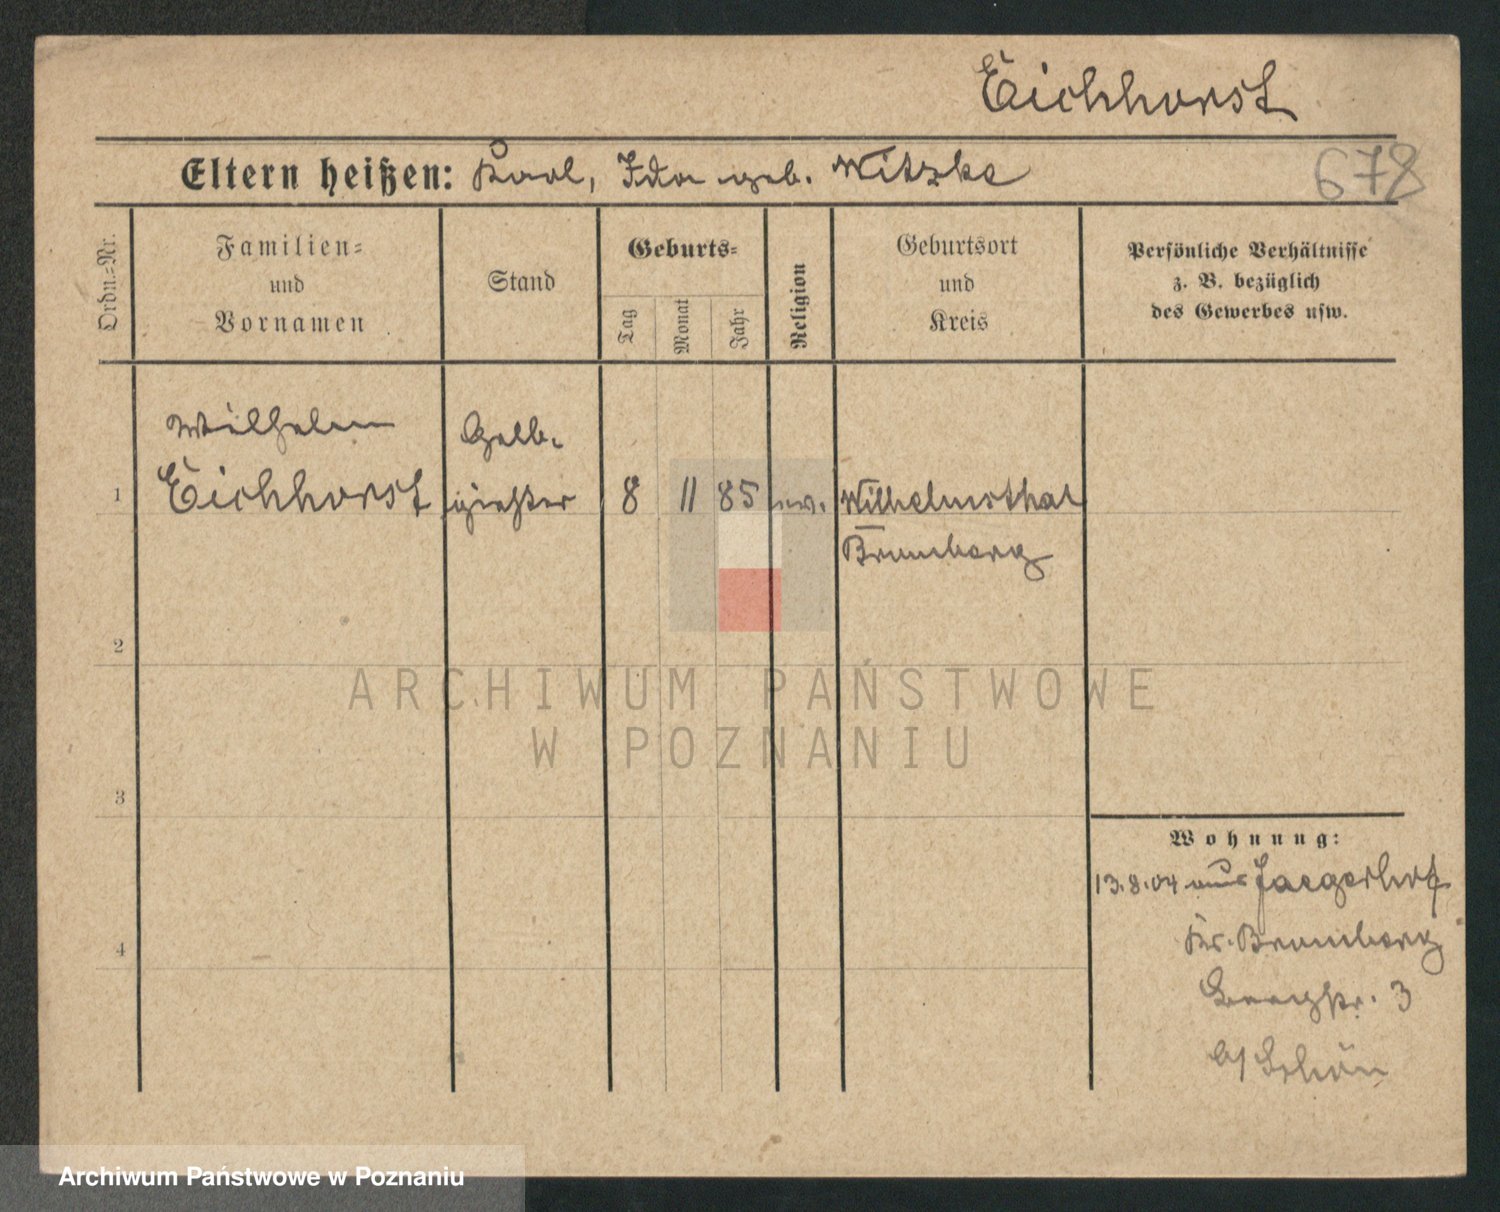 Eichhorst
Eltern heißen: Karl, Ida geb. Witzke
678
Ordn.=Nr.
Familien=
und
Vornamen
Stand
Geburts=
Tag
Monat
Jahr
Religion
Geburtsort
und
Kreis
Persönliche Verhältnisse
z. B. bezüglich
des Gewerbes usw.
Wilhelm
Gelb-
1 Eichhorst gießer 8 11 85 ev. Wilhelmsthal
Bromberg
2
ARCHIWUM PAŃSTWOWE
W POZNANIU
3
Wohnung:
13.8.04 aus Jaegerhof
4
Kr. Bromberg
3
b/ Schön
Archiwum Państwowe w Poznaniu